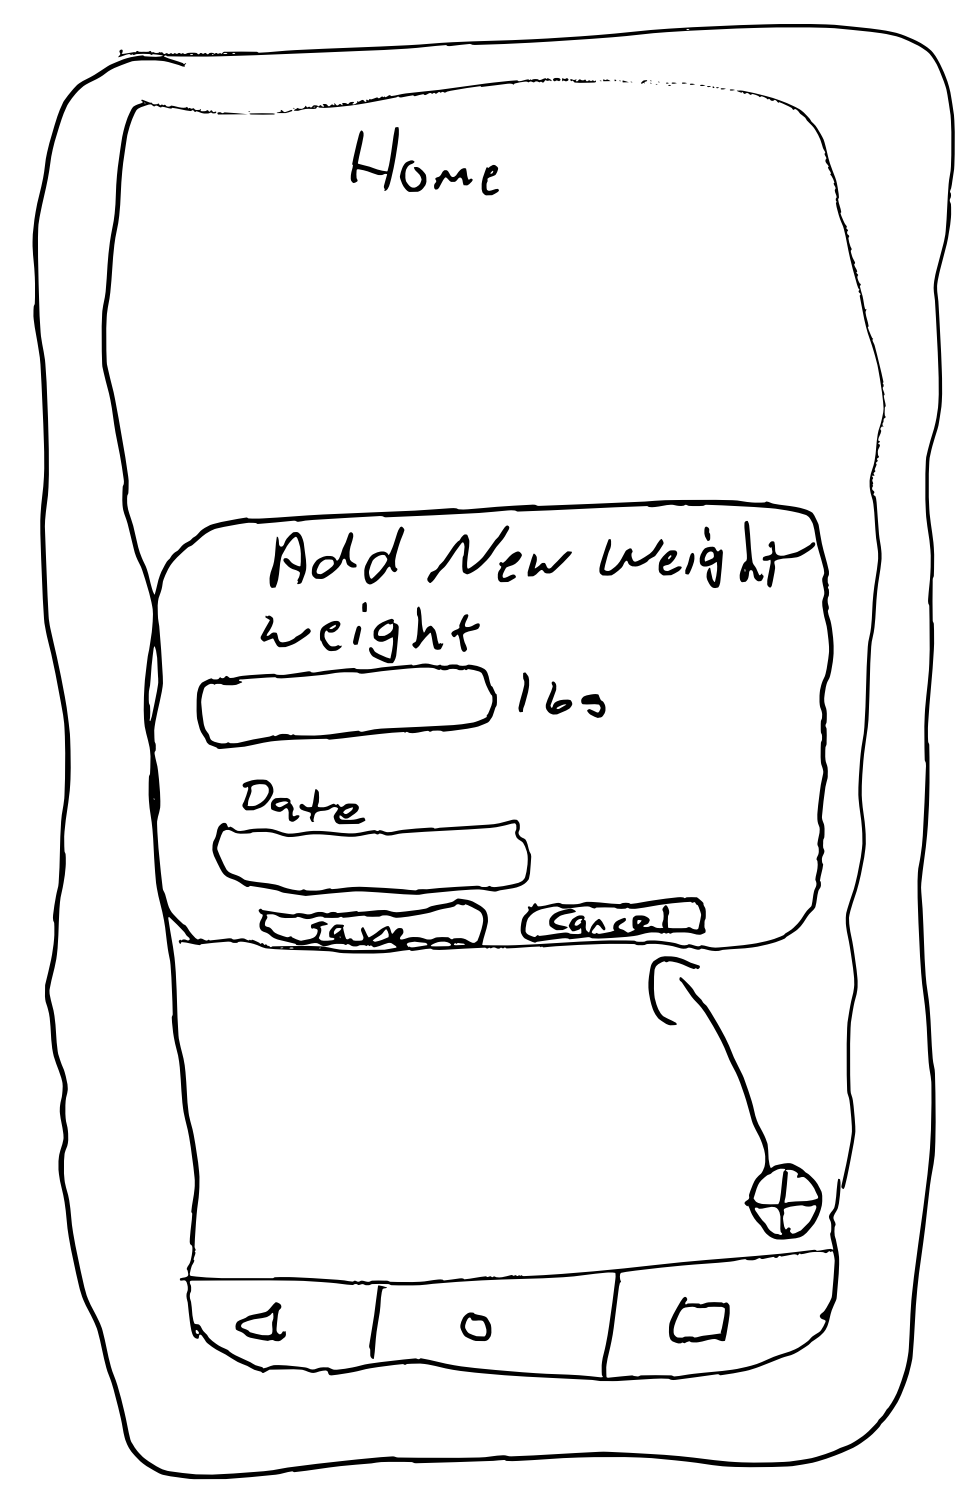 Home
Add New Weight
Weight
lbs
Date
Save Cancel